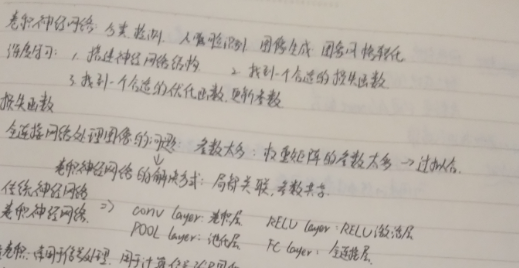 卷积神经网络: 分类、检测、人脸识别 图像生成 图像风格转化
深度学习: 1. 搭建神经网络结构 2. 找到一个合适的损失函数
3. 找到一个合适的优化函数,更新参数
损失函数
全连接网络处理图像的问题 参数太多: 权重矩阵的参数太多 → 过拟合.
卷积神经网络的解决方式: 局部关联,参数共享.
传统神经网络
卷积神经网络 => conv layer: 卷积层 RELU layer: RELU激活层
POOL layer: 池化层 FC layer: 全连接层.
卷积: 应用于信号处理 用于计算信号